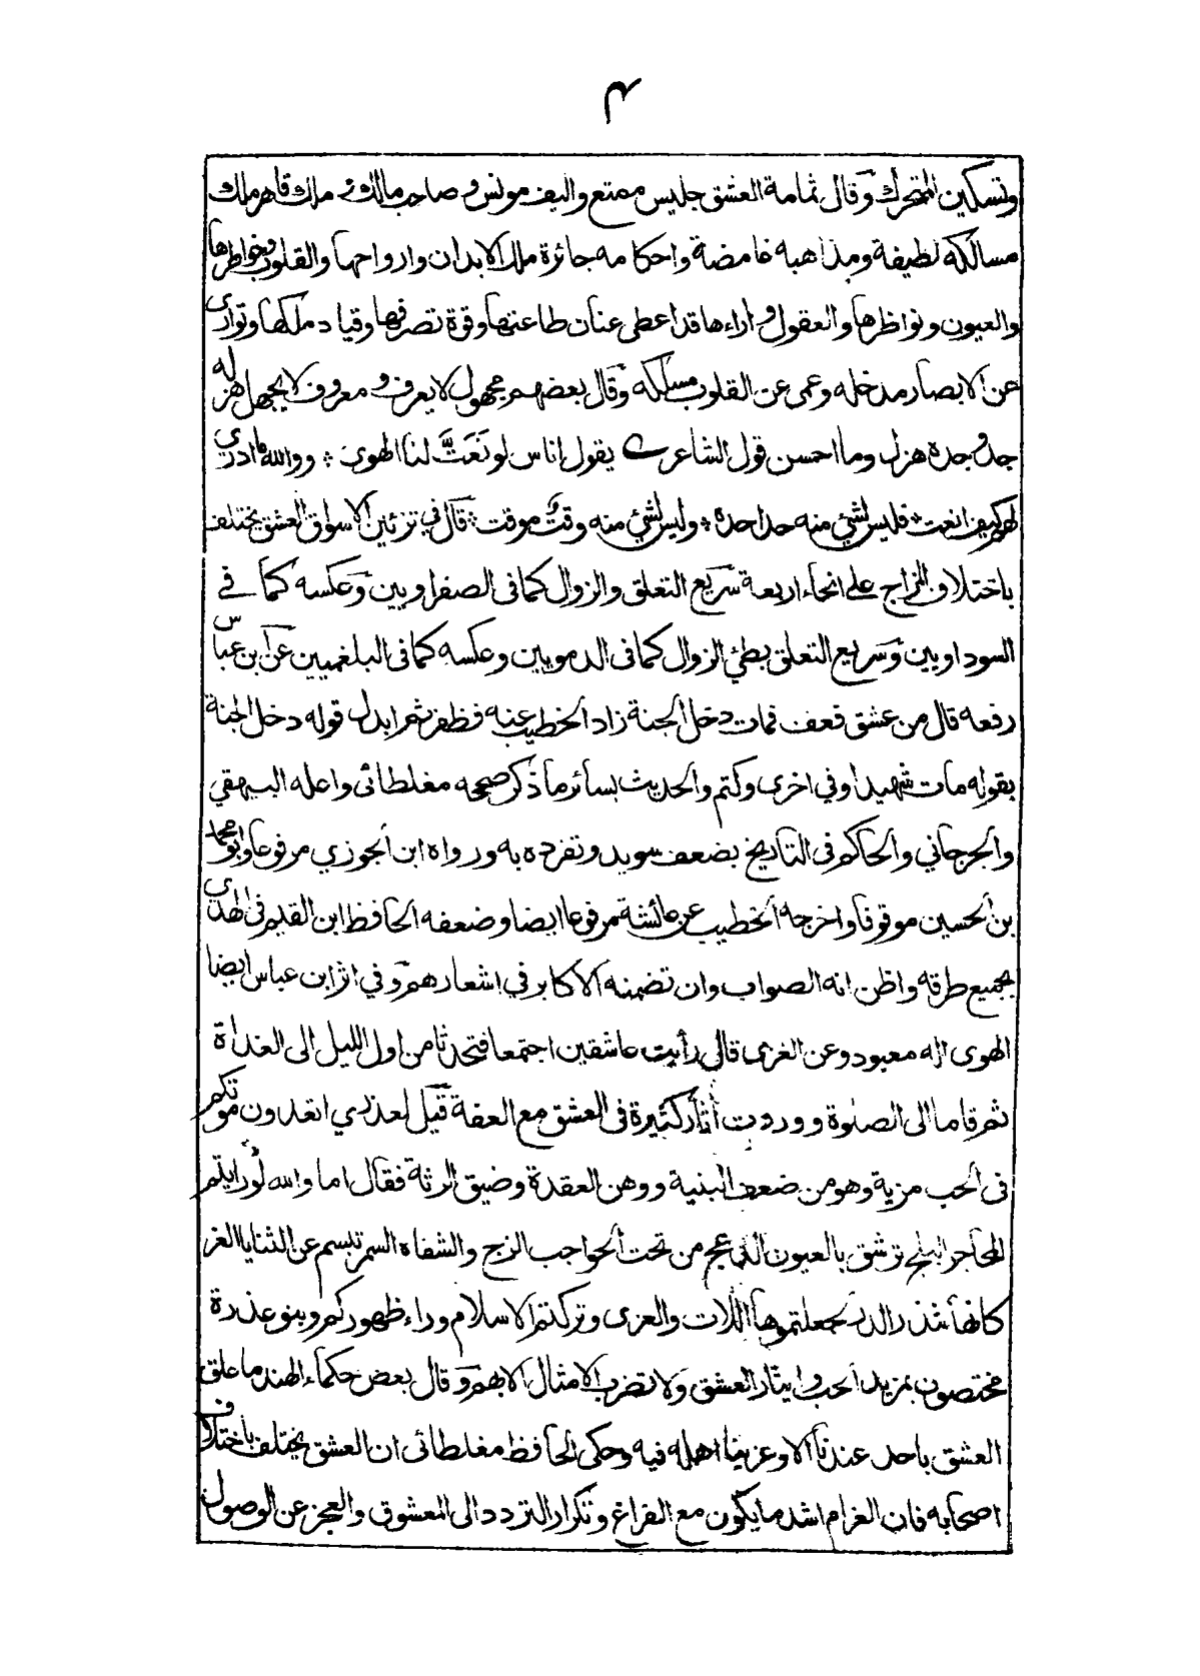 ٤
وتسكين المتحرك وقال ثمامة العشق جليس ممتع واليف مونس وصاحب مالك وملك قاهر ملك
مسالكه لطيفة ومذاهبه غامضة واحكامه جائزة ملك الابدان وارواحها والقلوب وخواطرها
والعيون ونواظرها والعقول واراءها قد اعطى عنان طاعتها وقوة تصرفها وقياد ملكها وتوارى
عن الابصار مدخله وعمى عن القلوب مسلكه وقال بعضهم مجهول لا يعرف ومعروف لا يجهل هزله
جد وجده هزل وما احسن قول الشاعر يقول اناس لو نَعَتَّ لنا الهوى ؞ ووالله ما ادري
لهم كيف انعت ؞ فليس لشئ منه حد احده ؞ وليس لشئ منه وقتٌ موقت ؞ قال في تزئين الاسواق العشق يختلف
باختلاف المزاج على انحاء اربعة سريع التعلق والزوال كما في الصفراويين وعكسه كما في
السوداويين وسريع التعلق بطئ الزوال كما في الدمويين وعكسه كما في البلغميين عن ابن عباس
رفعه قال من عشق فعف فمات دخل الجنة زاد الخطيب عنه فظفر ثم ابدل قوله دخل الجنة
بقوله مات شهيدا وفي اخرى وكتم والحديث بسائر ما ذكر صححه مغلطائى واعله البيهقي
والجرجاني والحاكم في التاريخ بضعف سويد وتفرده به ورواه ابن الجوزي مرفوعا وابو محمد
بن الحسين موقوفا واخرجه الخطيب عن عائشة مرفوعا ايضا وضعفه الحافظ ابن القيم في الهدى
بجميع طرقه واظن انه الصواب وان تضمنه الاكابر في اشعارهم وفي اثر ابن عباس ايضا
الهوى اله معبود وعن الغزى قال رأيت عاشقين اجتمعا فتحدثا من اول الليل الى الغداة
ثم قاما الى الصلوة ووردت أثار كثيرة في العشق مع العفة قيل لعذري اتعدون موتكم
في الحب مزية وهو من ضعف البنية ووهن العقدة وضيق الرئة فقال اما والله لو رايتم
المحاجر البلج ترشق بالعيون الدعج من تحت الحواجب الزج والشفاه السمر تبسم عن الثنايا الغر
كانها شذر الدر لجعلتموها اللات والعزى وتركتم الاسلام وراء ظهوركم وبنو عذرة
مختصون بمزيد الحب وايثار العشق ولا تضرب الامثال الا بهم وقال بعض حكماء الهند ما علق
العشق باحد عندنا الا وعزينا اهله فيه وحكى الحافظ مغلطائى ان العشق يختلف باختلاف
اصحابه فان الغرام اشد ما يكون مع الفراغ وتكرار التردد الى المعشوق والعجز عن الوصول